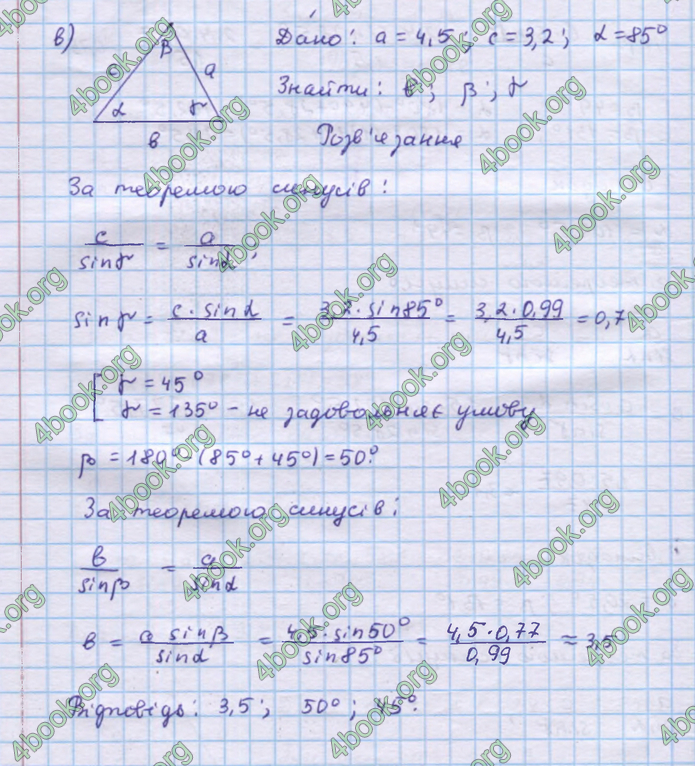 в) Дано: a = 4,5; c = 3,2; α = 85°
β
c a
α γ
в
Знайти: в; β; γ
Розв'язання
За теоремою синусів:
c/sinγ = a/sinα;
sinγ = c·sinα/a = 3,2·sin85°/4,5 = 3,2·0,99/4,5 = 0,7
[ γ = 45°
γ = 135° - не задовольняє умову
β = 180° - (85° + 45°) = 50°.
За теоремою синусів:
в/sinβ = a/sinα
в = a sinβ/sinα = 4,5·sin50°/sin85° = 4,5·0,77/0,99 ≈ 3,5
Відповідь: 3,5; 50°; 45°.
4book.org